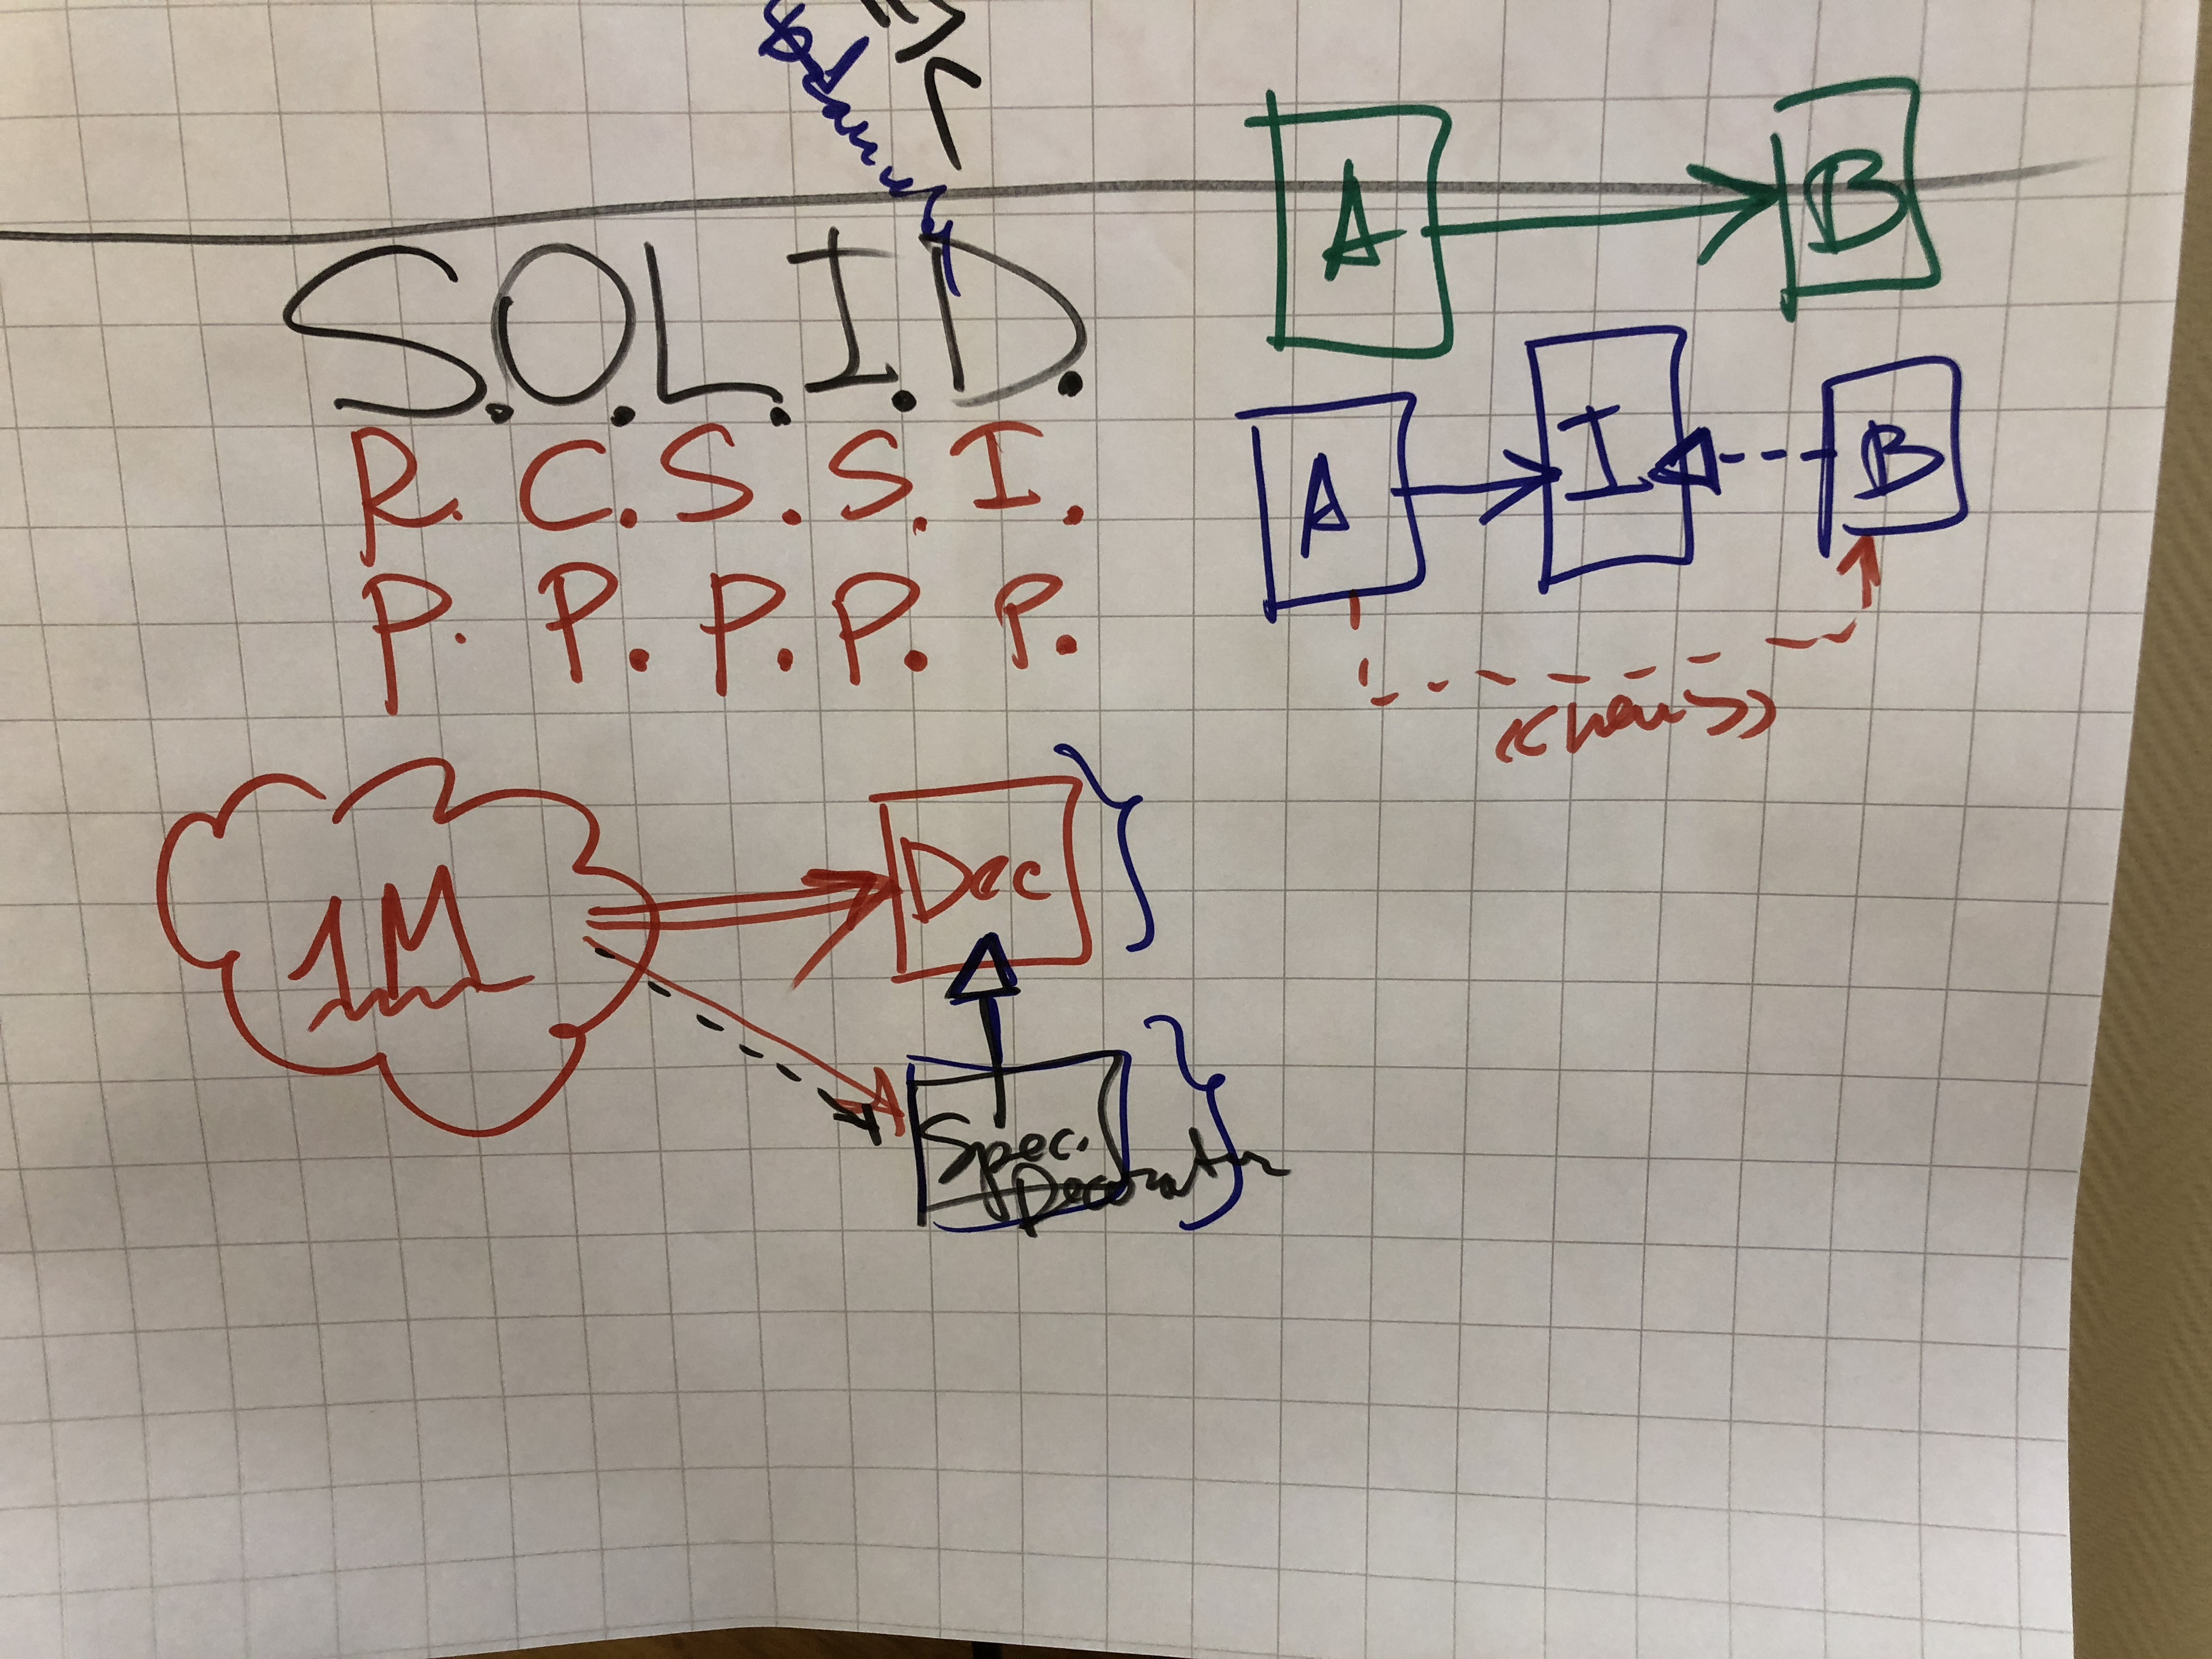 S.O.L.I.D.
R. C. S. S. I.
P. P. P. P. P.
A
B
A
I
B
1M
Dec
Spec.
Decorator